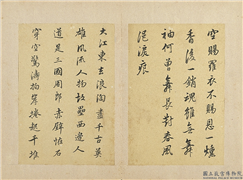 空賜羅衣不賜恩一燻
香後一銷魂雖然舞
袖何曾舞長對春風
浥淚痕
大江東去浪淘盡千古英
雄風流人物故壘西邊人
道是三國周郎赤壁怪石
穿空驚濤拍岸捲起千堆
國立故宮博物院